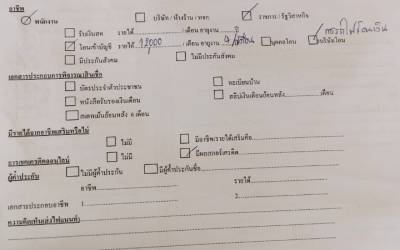 อาชีพ
พนักงาน บริษัท / ห้างร้าน / หจก ราชการ / รัฐวิสาหกิจ
รับเงินสด รายได้ /เดือน อายุงาน ปี
โอนเข้าบัญชี รายได้ 18000 /เดือน อายุงาน บุคคลโอน บริษัทโอน
มีประกันสังคม ไม่มีประกันสังคม
เอกสารประกอบการพิจารณาสินเชื่อ
บัตรประจำตัวประชาชน ทะเบียนบ้าน
หนังสือรับรองเงินเดือน สลิปเงินเดือนย้อนหลัง เดือน
สเตทเม้นย้อนหลัง 6 เดือน
มีรายได้จากอาชีพเสริมหรือไม่
ไม่มี มีอาชีพ/รายได้เสริมคือ
การเช็คเครดิตออนไลน์ ไม่มี มี
ผู้ค้ำประกัน ไม่มีผู้ค้ำประกัน มีผู้ค้ำประกันชื่อ
อาชีพ รายได้
เอกสารประกอบอาชีพ 1. 2.